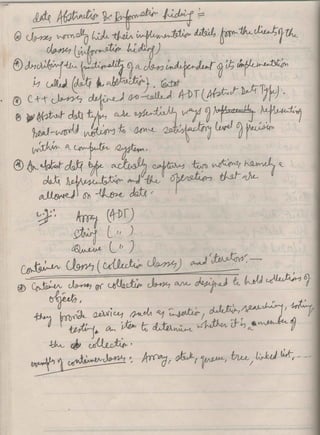 data Abstraction & Information hiding :=
classes normally hide their implementation details from the clients of the
classes (information hiding)
describing the functionality of a class independent of its implementation
is called (data abstraction).
C++ classes, defined so-called ADT (Abstract Data Type).
Abstract data types, are essentially ways of representing
real-world notions to some satisfactory level of precision
within a computer system.
An abstract data type actually captures two notions namely a
data representation and the operations that are
allowed on those data.
e.g:- Array (ADT)
String ( " )
Queue ( " )
Container Classes (collection classes) and iterators. —
Container classes or collection classes are designed to hold collections of
objects,
they provide services such as insertion, deletion, searching, sorting,
testing, an item to determine whether it is a member of
the collection.
examples of container classes : Array, stack, queue, tree, linked list, ----